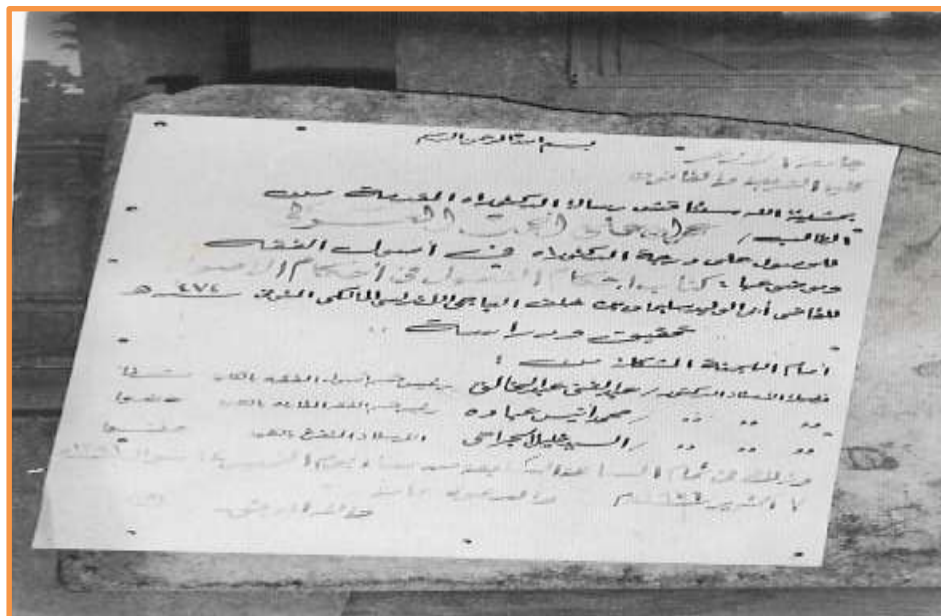 بسم الله الرحمن الرحيم
جامعة الأزهر
كلية الشريعة والقانون
بمشيئة الله ستناقش رسالة الدكتوراه المقدمة من
الطالب/
للحصول على درجة الدكتوراه في أصول الفقه
وموضوعها: كتاب إحكام الفصول في أحكام الأصول
للقاضي أبي الوليد سليمان بن خلف الباجي الأندلسي المالكي المتوفى سنة ٤٧٤ هـ
تحقيق ودراسة
أمام اللجنة المشكلة من:
فضيلة الأستاذ الدكتور/ عبد الغني عبد الخالق رئيس قسم أصول الفقه بالكلية
" " " / محمد أنيس عباده رئيس قسم الفقه المقارن بالكلية عضوا
" " " / السيد خليل الجراحي الأستاذ المتفرغ عضوا
وذلك في تمام الساعة
والدعوة عامة